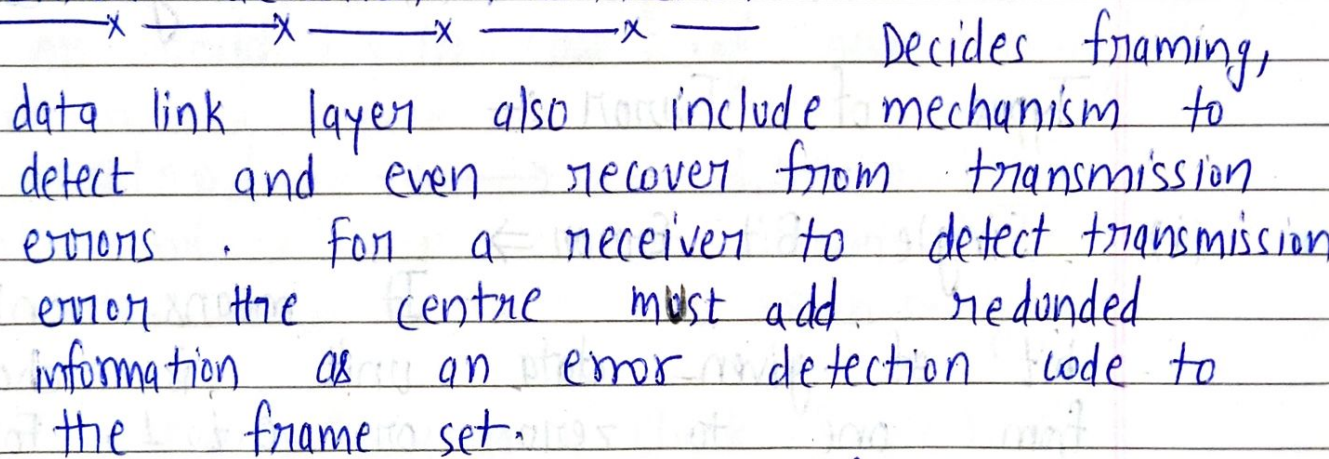 Decides framing,
data link layer also include mechanism to
detect and even recover from transmission
errors. For a receiver to detect transmission
error the centre must add. redunded
information as an error detection code to
the frame set.